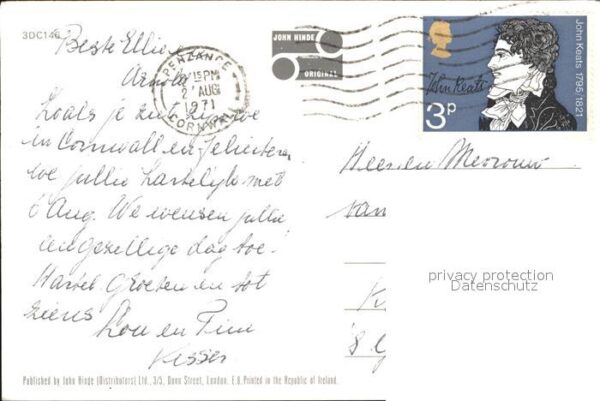 3DC146
Beste Ellie
Arnold
Zoals je ziet zijn we
in Cornwall en feliciteren
we jullie hartelijk met
6 Aug. We wensen jullie
een gezellige dag toe.
Hartel Groeten en tot
ziens
Lou en Tini
Kisser
JOHN HINDE
ORIGINAL
PENZANCE
15 PM
2 AUG
1971
CORNWALL
John Keats
3p
John Keats 1795-1821
Heer en Mevrouw
van
privacy protection
Datenschutz
Published by John Hinde (Distributors) Ltd., 3/5, Dunn Street, London, E.8. Printed in the Republic of Ireland.